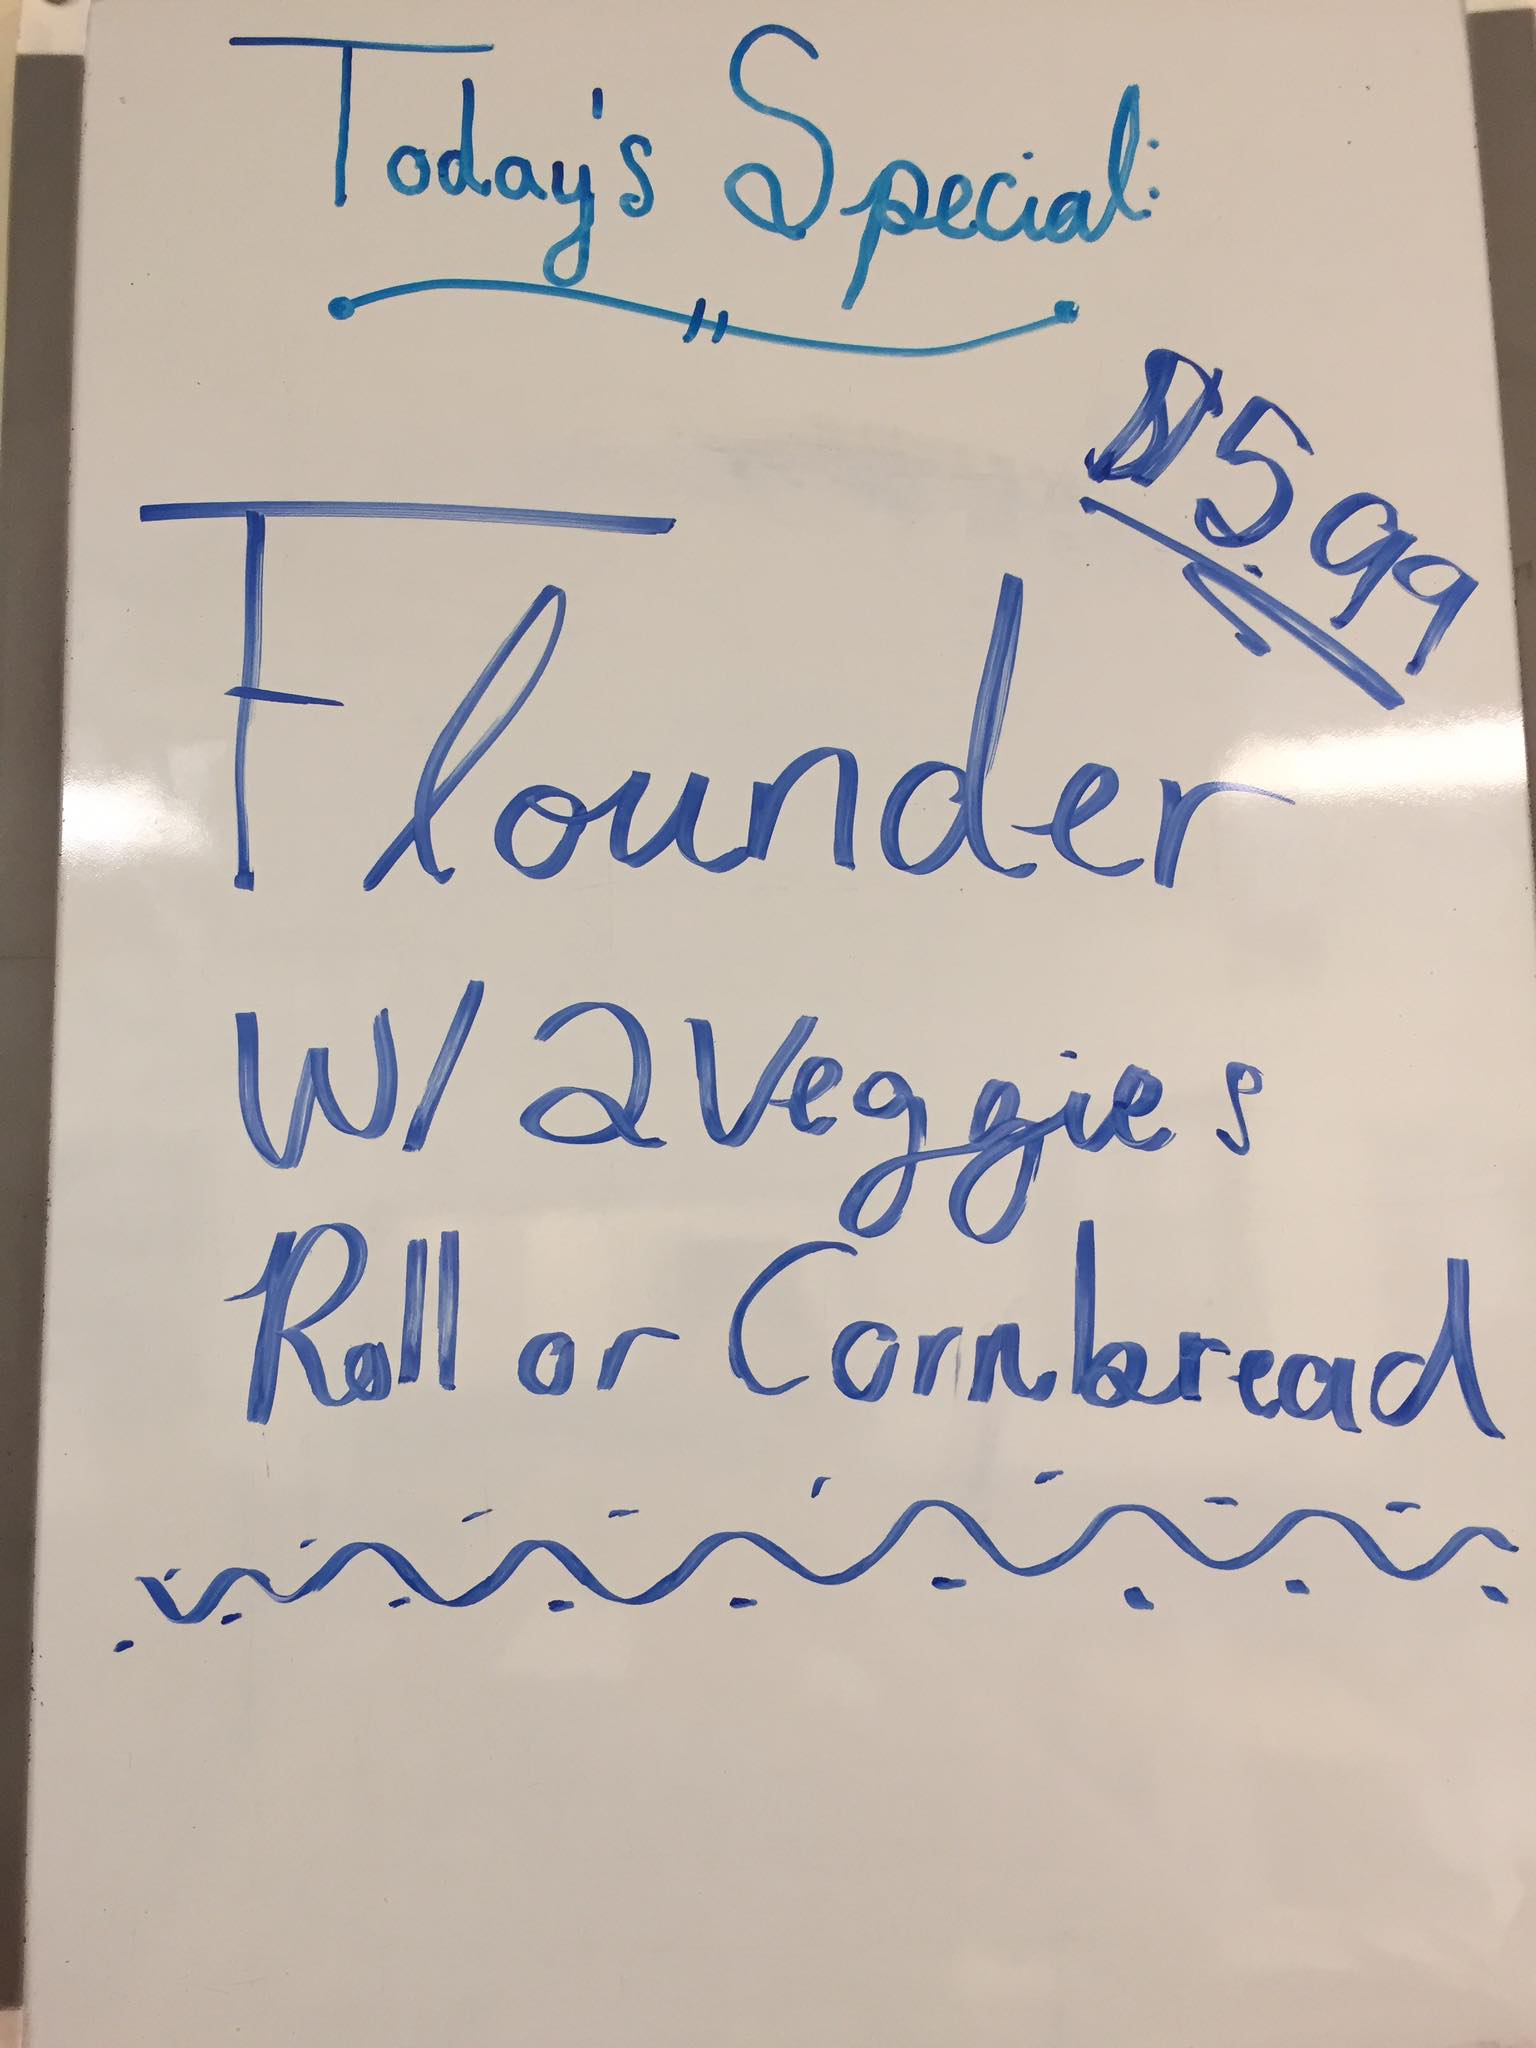 Today's Special:
$5.99
Flounder
W/ 2 Veggies
Roll or Cornbread